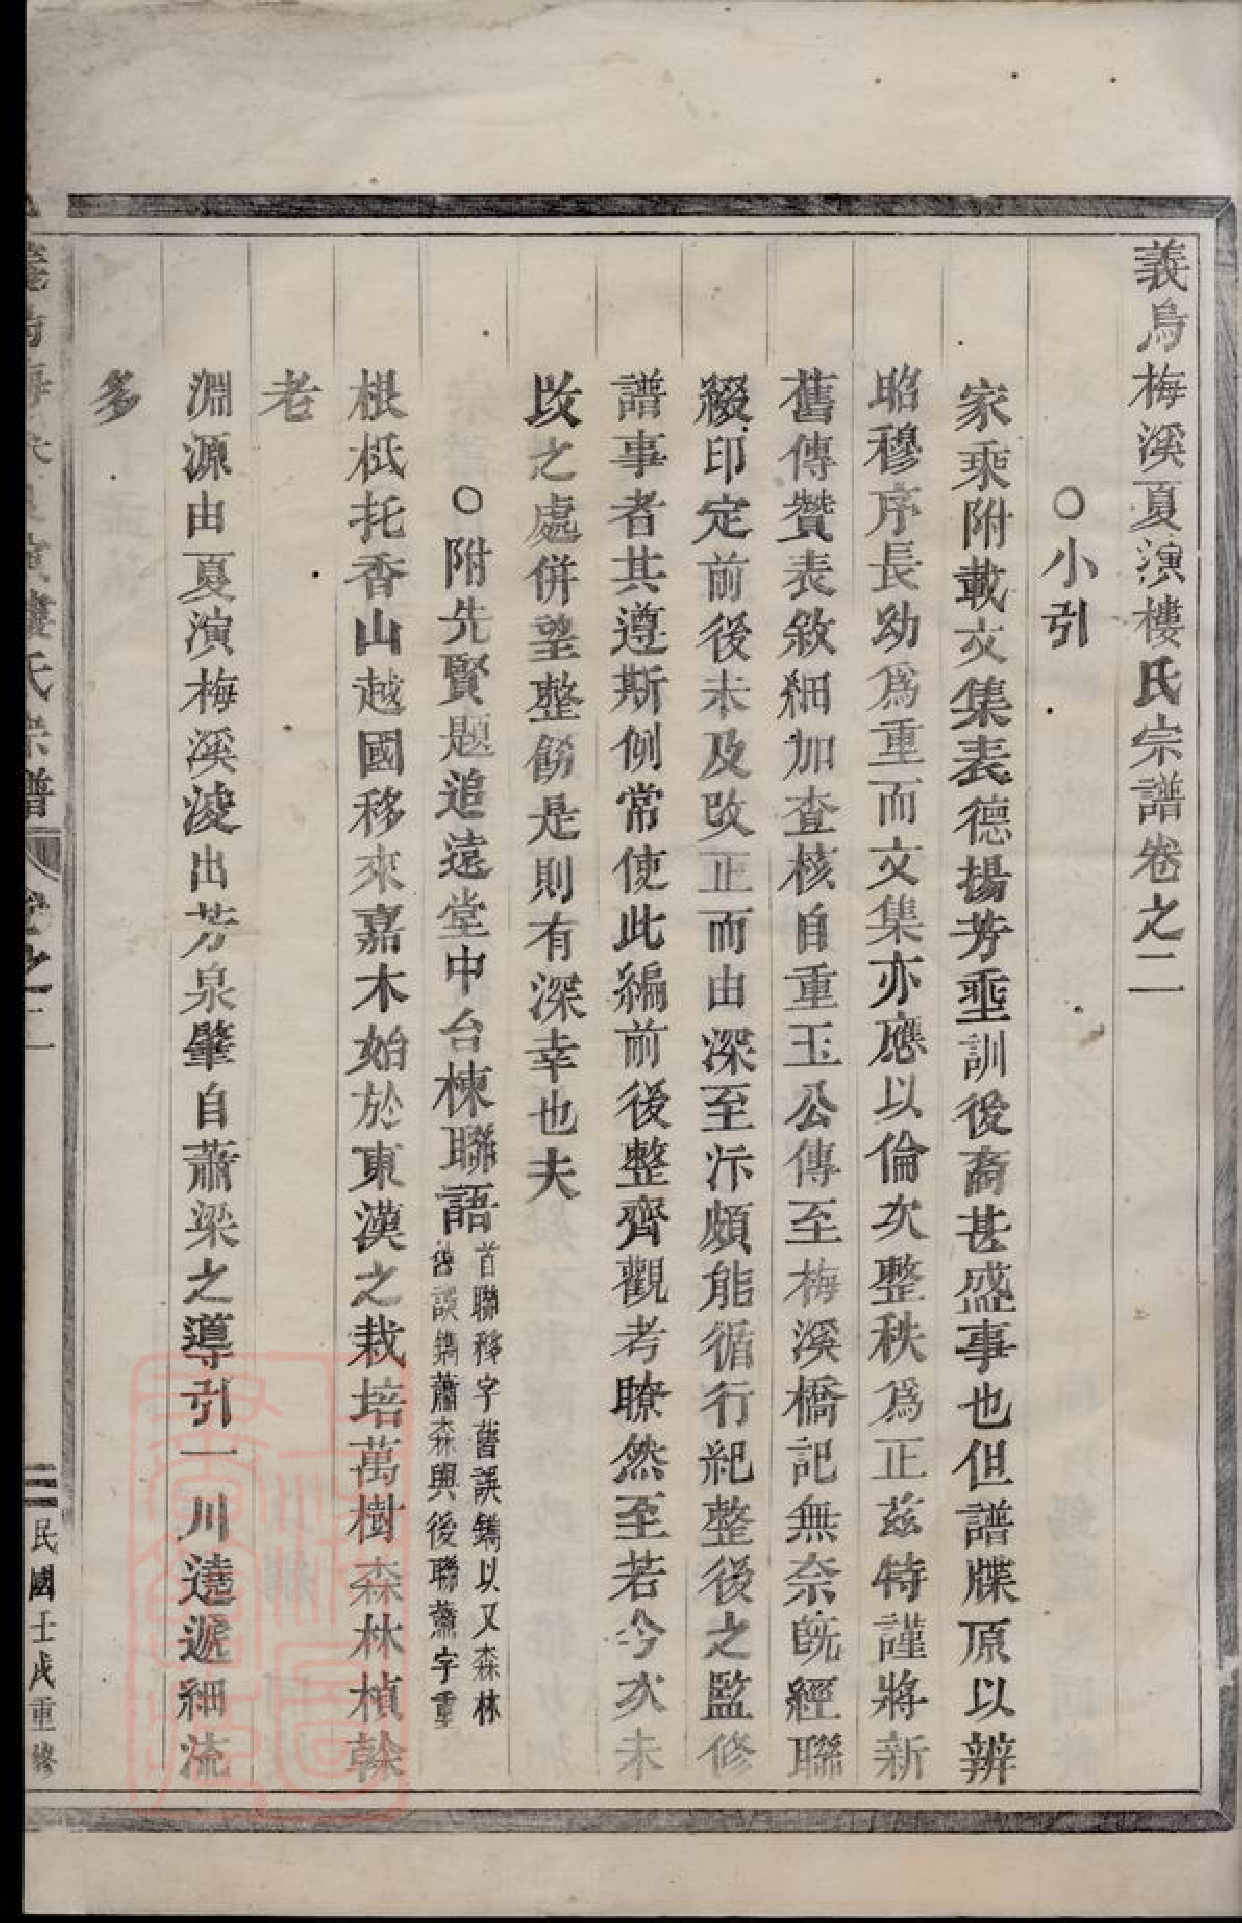 義烏梅溪夏演樓氏宗譜卷之二
○小引
家乘附載文集表德揚芳垂訓後裔甚盛事也但譜牒原以辨
昭穆序長幼爲重而文集亦應以倫次整秩爲正茲特謹將新
舊傳贊表敘細加查核自重玉公傳至梅溪橋記無奈旣經聯
綴印定前後未及改正而由深至泝頗能循行紀整後之監修
譜事者其遵斯例常使此編前後整齊觀考瞭然至若今次未
改之處併望整飭是則有深幸也夫
○附先賢題追遠堂中台棟聯語
首聯移字舊誤鐫以又森林
舊誤鐫蕭森與後聯蕭字重
根柢托香山越國移來嘉木始於東漢之栽培萬樹森林楨榦
老
淵源由夏演梅溪淩出芳泉肇自蕭梁之導引一川遶遞細流
多
氏宗譜
卷之二
二
民國壬戌重修